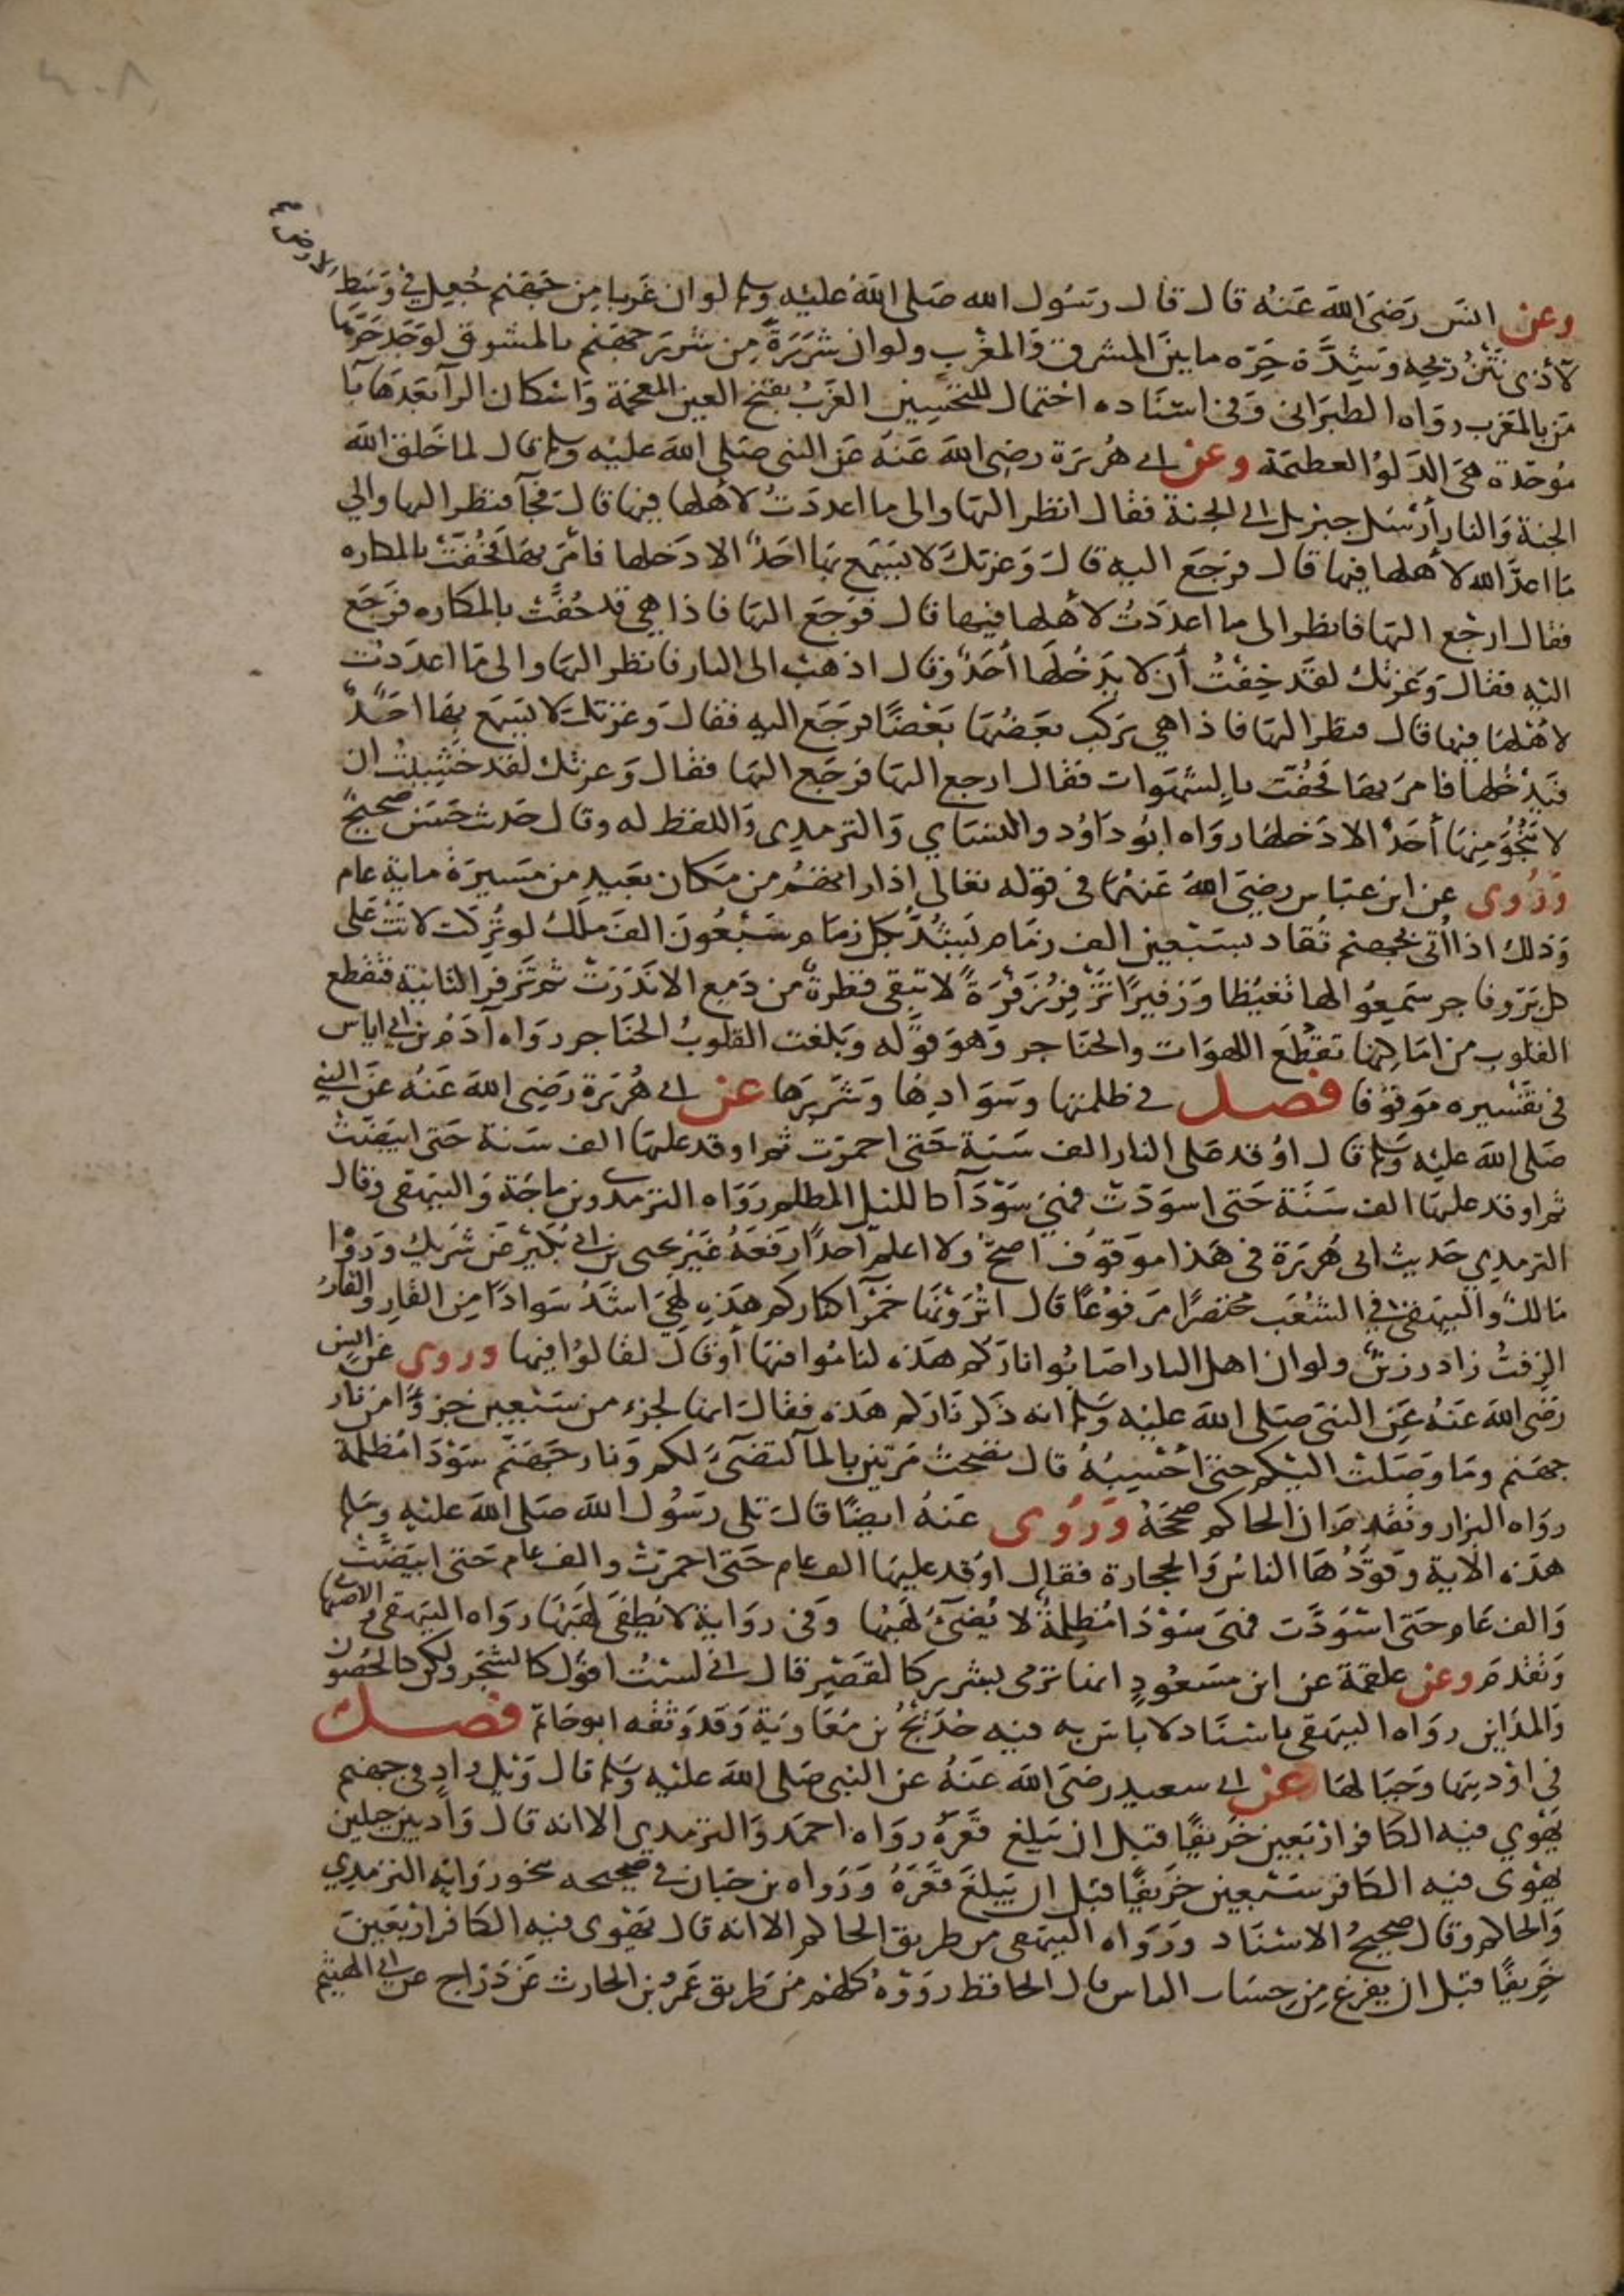 ٤٠٨
وعن انس رَضيَ الله عَنهُ قال قال رسُول الله صَلى الله عليْه وسلم لو ان غَربا مِن جَهنم جُعِل في وَسَطِ الارض
لآذى نَتْنُ رِيحِه وَشِدَّة حَرِّه ما بين المشرق وَالمغرب ولو ان شَرَرَةً مِن شَررَ جهنم بالمشرق لوَجَد حَرَّها
مَن بالمغرب رواه الطبرَاني وَفي اسنَاده احْتمال للتحسِين الغَرْبُ بفتح الغين المعجمة وَاسْكان الرآ بَعدَهَا بآ
مُوَحّدة هيَ الدَلوُ العظيمَة وعن ابي هُريَرة رضِى الله عَنهُ عَن النبي صَلى الله عليْه وسلم قال لما خَلقَ الله
الجنة وَالنار أرْسَل جبريل الى الجنة فقال انظر اليهَا والى ما اعددَتُ لاهْلها فيها قالَ فجآ فنظر اليها والي
مَا اعدَّ الله لأهلها فيها قال فرَجَع اليه قالَ وَعزتكَ لا يَسْمع بهَا احَدٌ الا دَخلها فامَر بهَا فحُفتْ بالمكاره
فقال ارجْع اليهَا فانظر الى ما اعدَدْتُ لاهْلها فيها قال فرَجَع اليهَا فاذا هي قد حُفَّتْ بالمكاره فرَجَع
اليْه فقالَ وَعَزتك لقَد خِفتُ أن لا يدْخُلهَا أحَدٌ وَقال اذهَبْ الى النار فانظر اليهَا والى مَا اعدَدتُ
لاهْلهَا فيها قال فنظر اليهَا فاذا هي يَركب بَعضُهَا بَعْضًا فرَجَع اليه فقالَ وَعزتكَ لا يَسمَع بهَا احَدٌ
فيَدْخُلها فامرَ بهَا فحُفت بالشهَوات فقال ارجع اليهَا فرجَع اليهَا فقال وَعزتك لقد خشِيتُ ان
لا يَنْجُوَ مِنهَا أحَدٌ الا دَخلهَا رواه ابوُ دَاوُد والنسَاي وَالترمِدى وَاللفظ له وقال حَديث حَسَن صحيحٌ
وَرُوى عن ابن عبّاس رضيَ الله عَنهُمَا في قوله تعَالى اذا راتهُم من مَكان بَعيد من مَسيرَة ماية عام
وَذلك اذا اُتى بجهنم تُقاد بسَبْعين الف زمَام يَشُدُّ بكل زمَام سَبْعُونَ الفَ مَلَك لو تُركت لاتتْ عَلى
كل بَرّ وفاجر سَمِعُوا لها تغيُظا وَزفيرًا تزْفِرُ زفرَةً لا تبقى قطرةٌ من دَمع الا نَدَرَتْ ثم تزفر الثانية فتقطع
القلوب من امَاكِنها تقطع اللهوَات والحنَاجر وَهوَ قوْله وَبلغت القلوبُ الحنَاجر رواه آدَم بن ابي اياس
في تفسيره مَوقوُفا فصل في ظلمتها وسَوَادِها وَشَرَرِهَا عن ابي هُرَيرَة رَضِى الله عَنهُ عَن النبي
صَلى الله عليْه وسلم قال اوُقد عَلى النار الف سَنَة حَتى احمرّتْ ثم اوقد عليهَا الف سَنة حَتى ابيَضتْ
ثم اوقد عليهَا الف سَنَة حَتى اسوَدّتْ فهي سَوْدَآ كالليل المظلم رَوَاه الترمِدي وبن ماجَة وَالبيَهقي وقال
الترمدِي حَديث ابي هُرَيرَة في هَذا موَقوُف اصحُّ ولا اعلم أحَدًا رَفَعَهُ غيَر يحيى بن ابي بُكَيْر عَن شَريك وَرَوَا
مَالكٌ والبيَهقي في الشُعَب مختصرًا مَرفوُعًا قال اتُرَوْنَهَا حَمْرآ كناركم هَذِه لهَيَ اشَدُ سَوادًا مِن القارِ والقارُ
الزِفتُ زاد رزين ولو ان اهل النار اصَابُوا نارَكم هَذه لنامُوا فيهَا أوْ قالَ لقالوُا فيها وروى عَن انس
رَضى الله عَنهُ عَن النبيَ صَلى الله عليْه وسلم انه ذكر نَارَكم هَذه فقالَ انها لجزء من سَبْعين جزءًا من نار
جهَنم وَما وَصَلتْ اليْكم حتى احْسِبُهُ قال نضِحتْ مَرتين بالمآ لتضىَٔ لكم وَنار جهَنم سَوْدَا مُظلمَة
رواه البزار وَتقَدم ان الحاكم صححَهُ وَرُوى عَنهُ ايضًا قالَ تلى رسُول الله صَلى الله عليْه وسلم
هذه الآية وَقودُهَا الناسُ وَالحجارة فقال اوُقد عليهَا الف عام حَتى احمرّتْ والف عام حَتى ابيَضتْ
وَالف عَام حَتى اسْوَدّت فهي سَوْدَا مُظلِمةٌ لا يُضىَٔ لهَبُهَا وَفي روَايَة لا يَطفَى لهَبُهَا روَاه البيهَقي والاصبهَاني
وَتقَدم وعن علقمَة عن ابن مسَعُودٍ انها ترمى بشرر كالقصْر قال اني لستُ اقوُل كالشجَر ولكن كالحُصُون
وَالمدَاين روَاه البيهَقي باسْنَاد لا باسَ به فيه حُدَيْجُ بن مُعَاويَة وَقدَ وَثقه ابو حَاتم فصل
في اوْديَتها وَجبَالهَا عن ابي سعيدٍ رضىَ الله عَنهُ عن النبي صَلى الله عليْه وسلم قال وَيْل واد في جهنم
يَهْوي فيه الكافر ارْبَعين خَريفًا قبل ان يَبلغ قعَرَهُ روَاه احمَد وَالترمِدي الا انه قالَ وَادٍ بين جبلين
يَهْوى فيه الكَافر سَبْعين خَريفًا قبل ان يَبلغَ قعَرَهُ وَرَواه بن حبان في صحيحه بنحو روَاية الترمِدِي
وَالحاكم وقال صحيحُ الاسْنَاد وَرَوَاه البيهَقي من طريق الحاكم الا انه قال يَهْوى فيه الكَافر ارْبَعينَ
خَرِيفًا قبل ان يفرغ مِن حِسَاب الناس قال الحافظ رووَهُ كلهُم من طَريق عَمْرُو بن الحارث عَن دَرّاج عن ابي الهيثم